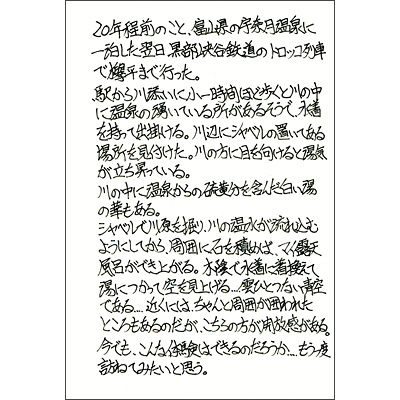 20年程前のこと、富山県の宇奈月温泉に
一泊した翌日 黒部峡谷鉄道のトロッコ列車
で欅平まで行った。
駅から川添いに、小一時間ほど歩くと川の中
に温泉の湧いている所があるそうで、水着
を持って出掛ける。川辺にシャベルの置いてある
場所を見付けた。川の方に目を向けると湯気
が立ち昇っている。
川の中に温泉からの硫黄分を含んだ白い湯
の華もある。
シャベルで川原を掘り、川の温水が流れ込む
ようにしてから、周囲に石を積めば、マイ露天
風呂ができ上がる。木陰で水着に着換えて
湯につかって空を見上げる…雲ひとつない青空
である…近くには、ちゃんと周囲が囲われた
ところもあるのだが、こちらの方が開放感がある。
今でも、こんな体験はできるのだろうか…もう一度
訪ねてみたいと思う。